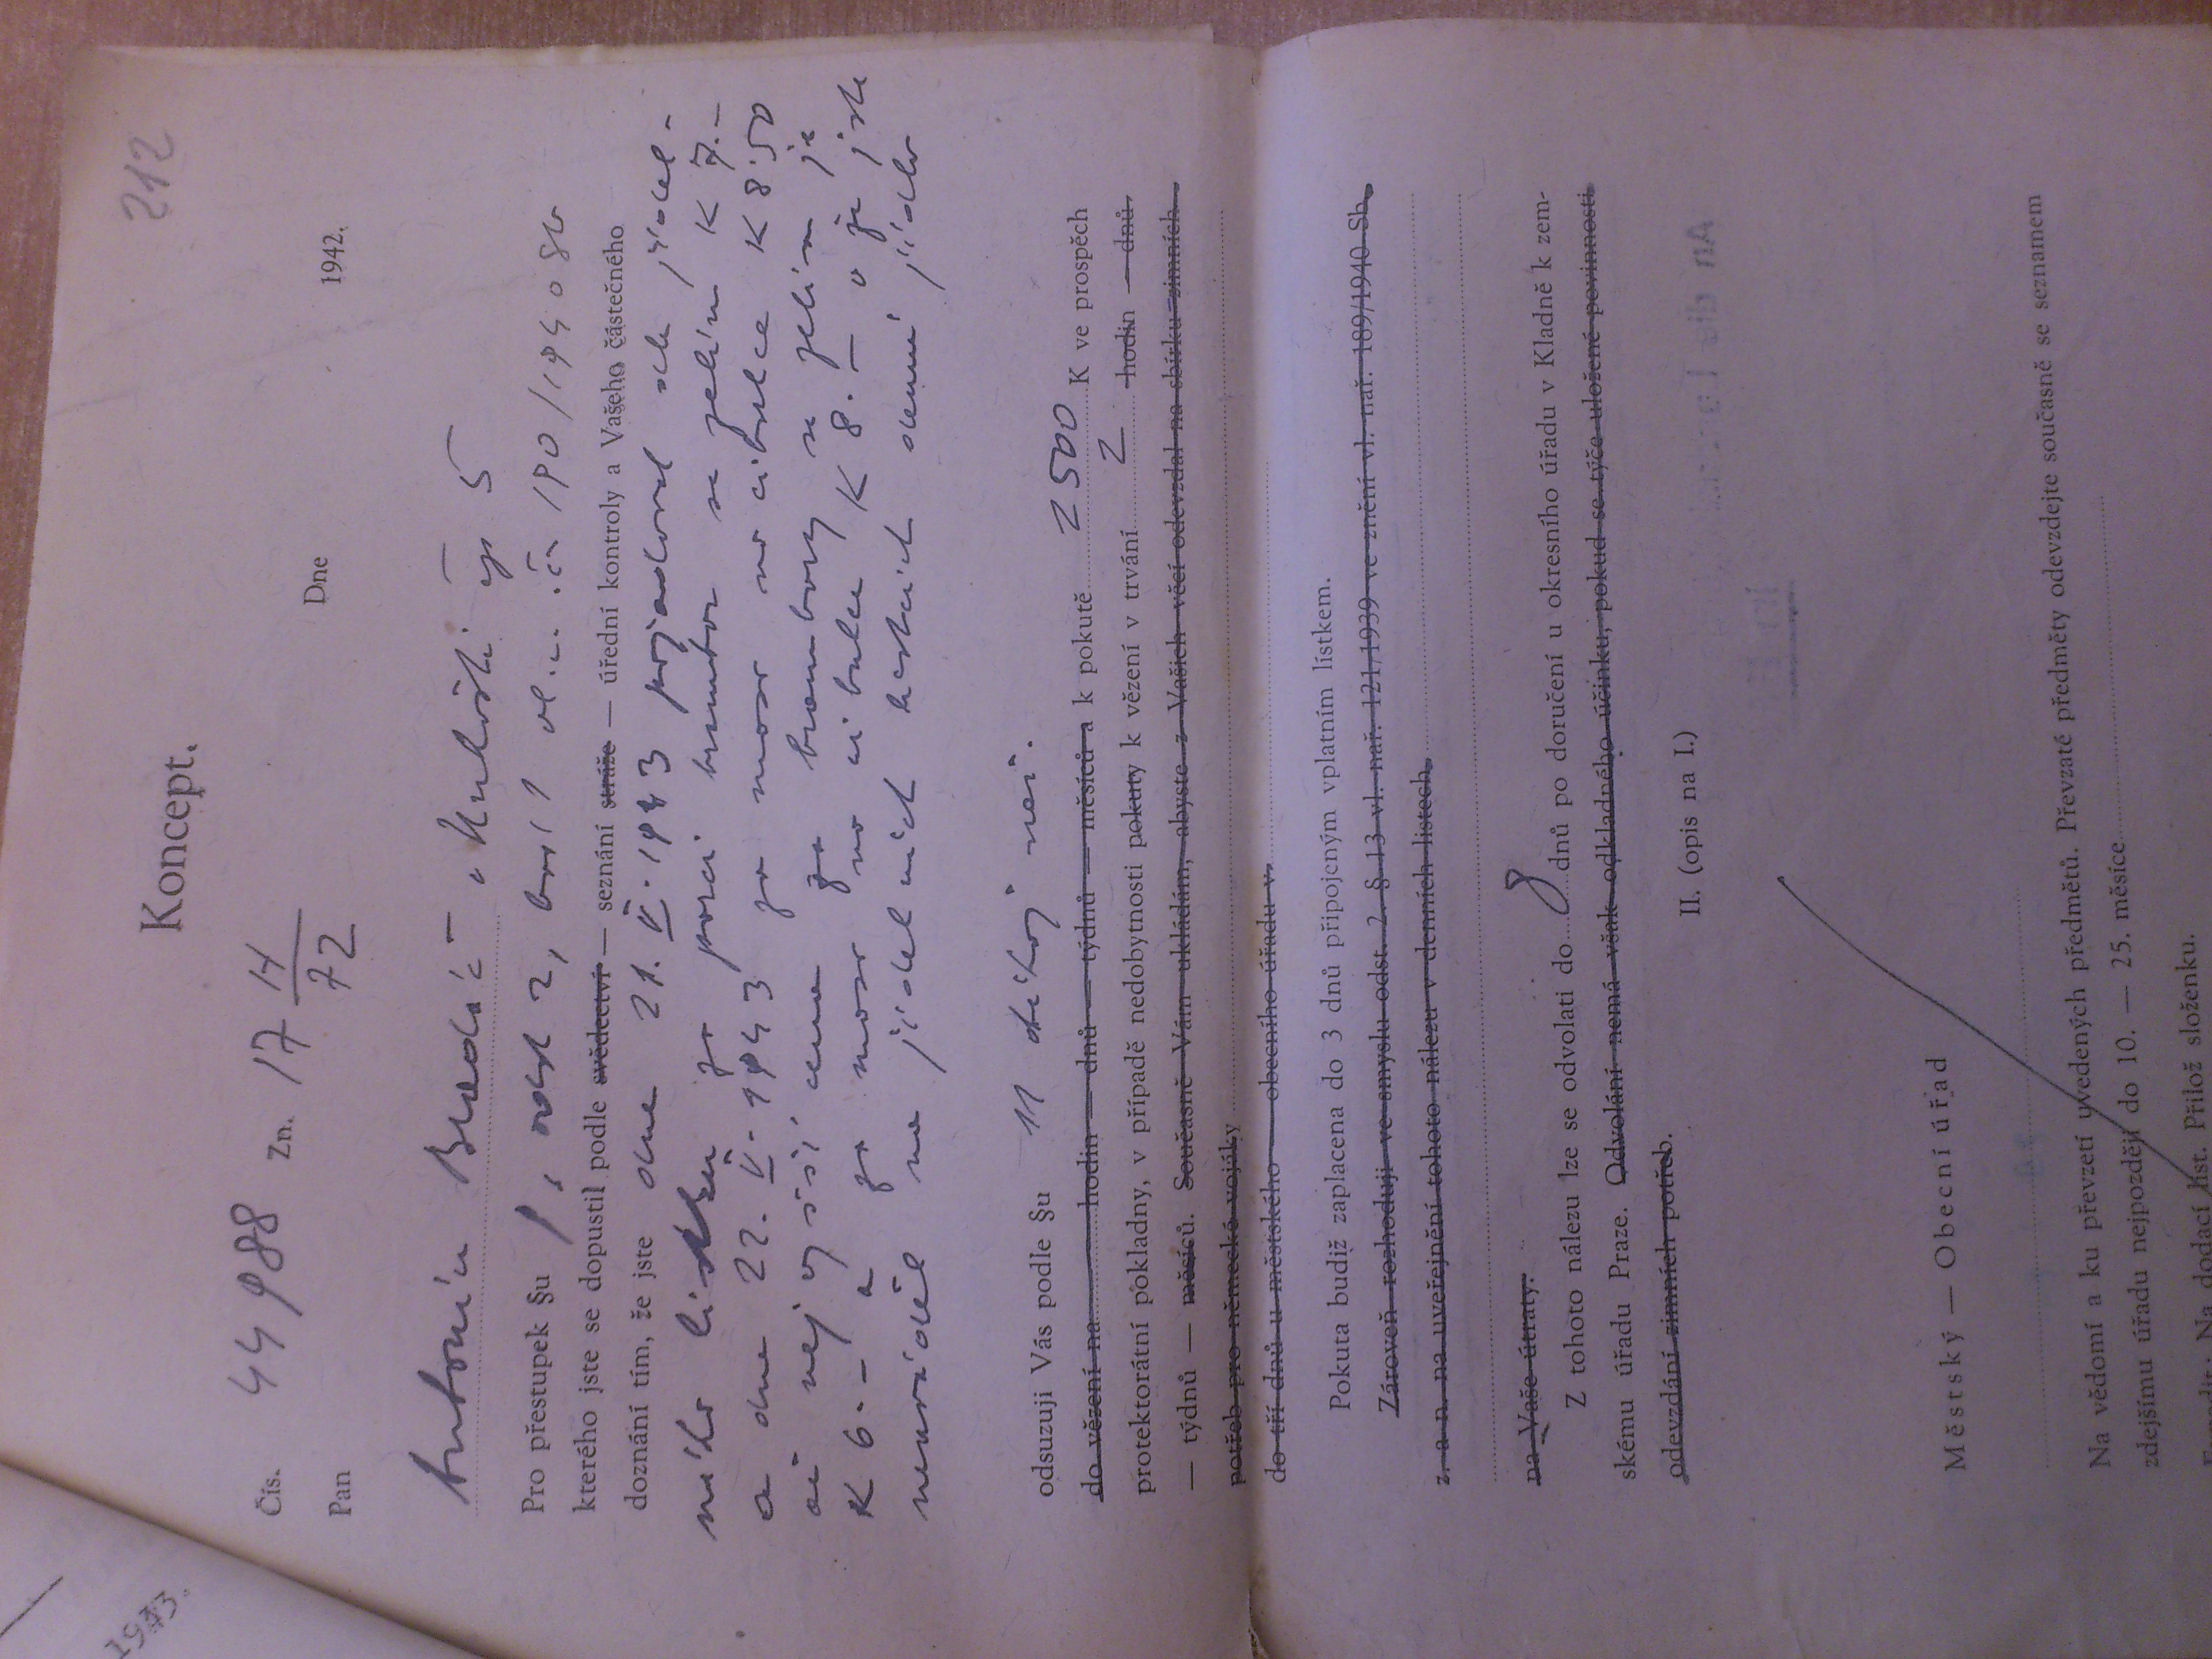 1943.
212
Koncept.
Čís. 44988 Zn. 17 H/72
Dne 1942.
Pan
Antonín Bradáč čp 5
Pro přestupek §u odst 2, č 190/1940 Sb
kterého jste se dopustil podle svědectví — seznání stráže — úřední kontroly a Vašeho částečného
doznání tím, že jste dne 21. V. 1943 požadoval dle jídel-
ního lístku za porci brambor se zelím K 7.-
a dne 22. V. 1943 za maso na cibulce K 8·50
ač nejvyšší cena za brambory se zelím je
K 6.- a za maso na cibulce K 8.- a že jste
neuváděl na jídelních lístcích denní jídlo
odsuzuji Vás podle §u 11 téhož nař.
do vězení na hodin — dnů — týdnů — měsíců a k pokutě 2500 K ve prospěch
protektorátní pokladny, v případě nedobytnosti pokuty k vězení v trvání 2 hodin — dnů.
— týdnů — měsíců. Současně Vám ukládám, abyste z Vašich věcí odevzdal na sbírku zimních
potřeb pro německé vojáky
do tří dnů u městského — obecního úřadu v
Pokuta budiž zaplacena do 3 dnů připojeným vplatním lístkem.
Zároveň rozhoduji ve smyslu odst. 2. § 13 vl. nař. 121/1939 ve znění vl. nař. 189/1940 Sb.
z. a n. na uveřejnění tohoto nálezu v denních listech.
na Vaše útraty.
Z tohoto nálezu lze se odvolati do 8 dnů po doručení u okresního úřadu v Kladně k zem-
skému úřadu Praze. Odvolání nemá však odkladného účinku, pokud se týče uložené povinnosti
odevzdání zimních potřeb.
II. (opis na I.)
Městský — Obecní úřad
Na vědomí a ku převzetí uvedených předmětů. Převzaté předměty odevzdejte současně se seznamem
zdejšímu úřadu nejpozději do 10. — 25. měsíce
Expedit: Na dodací list. Přilož složenku.